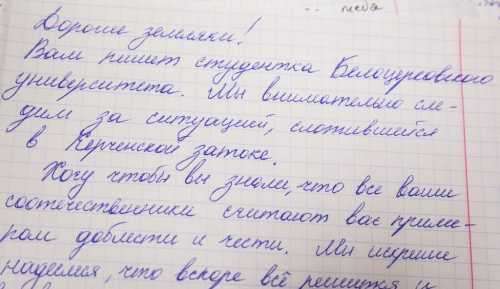 Дорогие земляки!
Вам пишет студентка Белоцерковского
университета. Мы внимательно сле-
дим за ситуацией, сложившейся
в Керченской затоке.
Хочу чтобы вы знали, что все ваши
соотечественники считают вас приме-
ром доблести и чести. Мы искренне
надеемся, что вскоре всё решится и